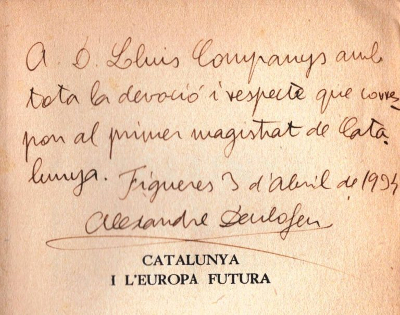 A D. Lluis Companys amb
tota la devoció i respecte que corres
pon al primer magistrat de Cata-
lunya. Figueres 3 d'abril de 1934
Alexandre Deulofeu
CATALUNYA
I L'EUROPA FUTURA